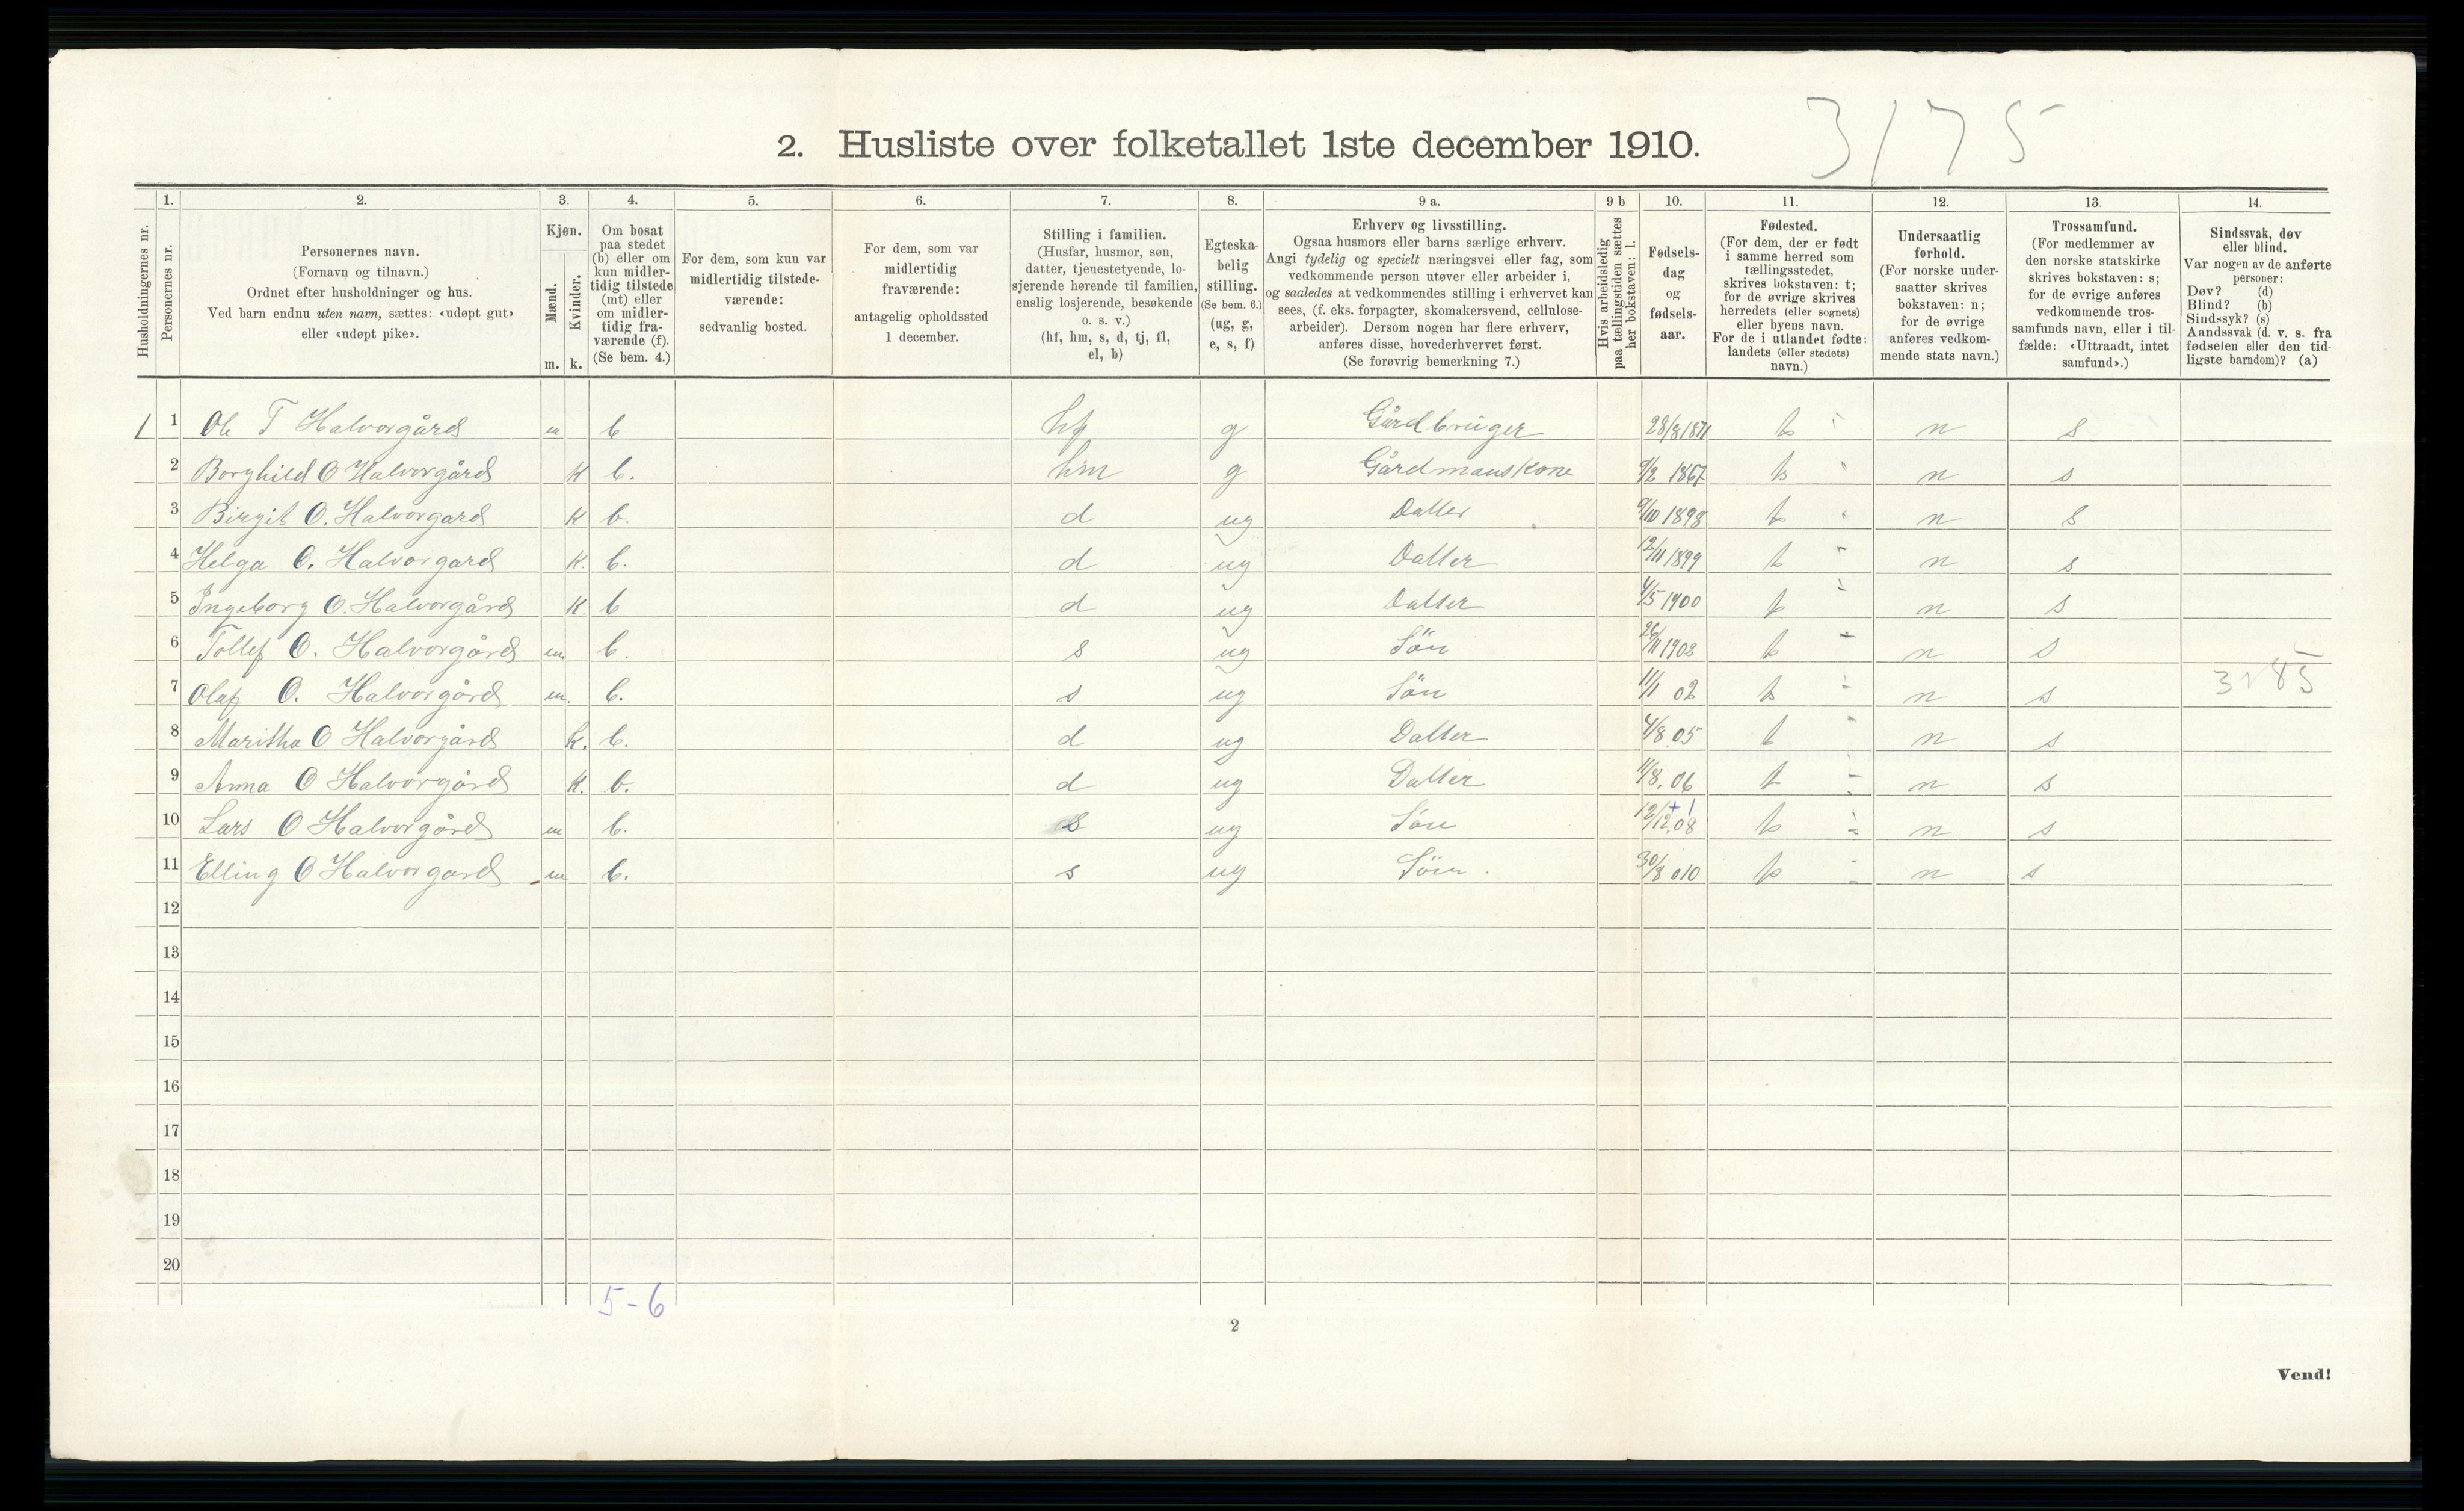 3175
2. Husliste over folketallet 1ste december 1910.
Husholdningernes nr.
1. Personernes nr.
2. Personernes navn.
(Fornavn og tilnavn.)
Ordnet efter husholdninger og hus.
Ved barn endnu uten navn, sættes: «udøpt gut»
eller «udøpt pike».
3. Kjøn.
Mænd. m.
Kvinder. k.
4. Om bosat
paa stedet
(b) eller om
kun midler-
tidig tilstede
(mt) eller
om midler-
tidig fra-
værende (f).
(Se bem. 4.)
5. For dem, som kun var
midlertidig tilstede-
værende:
sedvanlig bosted.
6. For dem, som var
midlertidig
fraværende:
antagelig opholdssted
1 december.
7. Stilling i familien.
(Husfar, husmor, søn,
datter, tjenestetyende, lo-
sjerende hørende til familien,
enslig losjerende, besøkende
o. s. v.)
(hf, hm, s, d, tj, fl,
el, b)
8. Egteska-
belig
stilling.
(Se bem. 6.)
(ug, g,
e, s, f)
9 a. Erhverv og livsstilling.
Ogsaa husmors eller barns særlige erhverv.
Angi tydelig og specielt næringsvei eller fag, som
vedkommende person utøver eller arbeider i,
og saaledes at vedkommendes stilling i erhvervet kan
sees, (f. eks. forpagter, skomakersvend, cellulose-
arbeider). Dersom nogen har flere erhverv,
anføres disse, hovederhvervet først.
(Se forøvrig bemerkning 7.)
9 b Hvis arbeidsledig
paa tællingstiden sættes
her bokstaven: l.
10. Fødsels-
dag
og
fødsels-
aar.
11. Fødested.
(For dem, der er født
i samme herred som
tællingsstedet,
skrives bokstaven: t;
for de øvrige skrives
herredets (eller sognets)
eller byens navn.
For de i utlandet fødte:
landets (eller stedets)
navn.)
12. Undersaatlig
forhold.
(For norske under-
saatter skrives
bokstaven: n;
for de øvrige
anføres vedkom-
mende stats navn.)
13. Trossamfund.
(For medlemmer av
den norske statskirke
skrives bokstaven: s;
for de øvrige anføres
vedkommende tros-
samfunds navn, eller i til-
fælde: «Uttraadt, intet
samfund».)
14. Sindssvak, døv
eller blind.
Var nogen av de anførte
personer:
Døv? (d)
Blind? (b)
Sindssyk? (s)
Aandssvak (d. v. s. fra
fødselen eller den tid-
ligste barndom)? (a)
1 1 Ole T Halvorgård m b hf g Gårdbruger 28/8 1871 t n s
2 Borghild O Halvorgård K b. hm g Gårdmanskone 9/2 1867 t n s
3 Birgit O. Halvorgard K b. d ug Datter 9/10 1898 t n s
4 Helga O. Halvorgard K. b. d ug Datter 12/11 1899 t n s
5 Ingeborg O. Halvorgård K b d ug Datter 4/5 1900 t n s
6 Tollef O. Halvorgård m b. s ug Sön 26/11 1903 t n s
7 Olaf O. Halvorgård m. b. s ug Sön 11/1 02 t n s
8 Maritha O Halvorgård k. b. d ug Datter 4/8 05 t n s
9 Anna O Halvorgård K. b. d ug Datter 11/8. 06 t n s
10 Lars O Halvorgård m b. s ug Sön 12/12,08 t n s
11 Elling O Halvorgard m b. s ug Sön. 30/8 010 t n s
12
13
14
15
16
17
18
19
20
5-6
2
Vend!